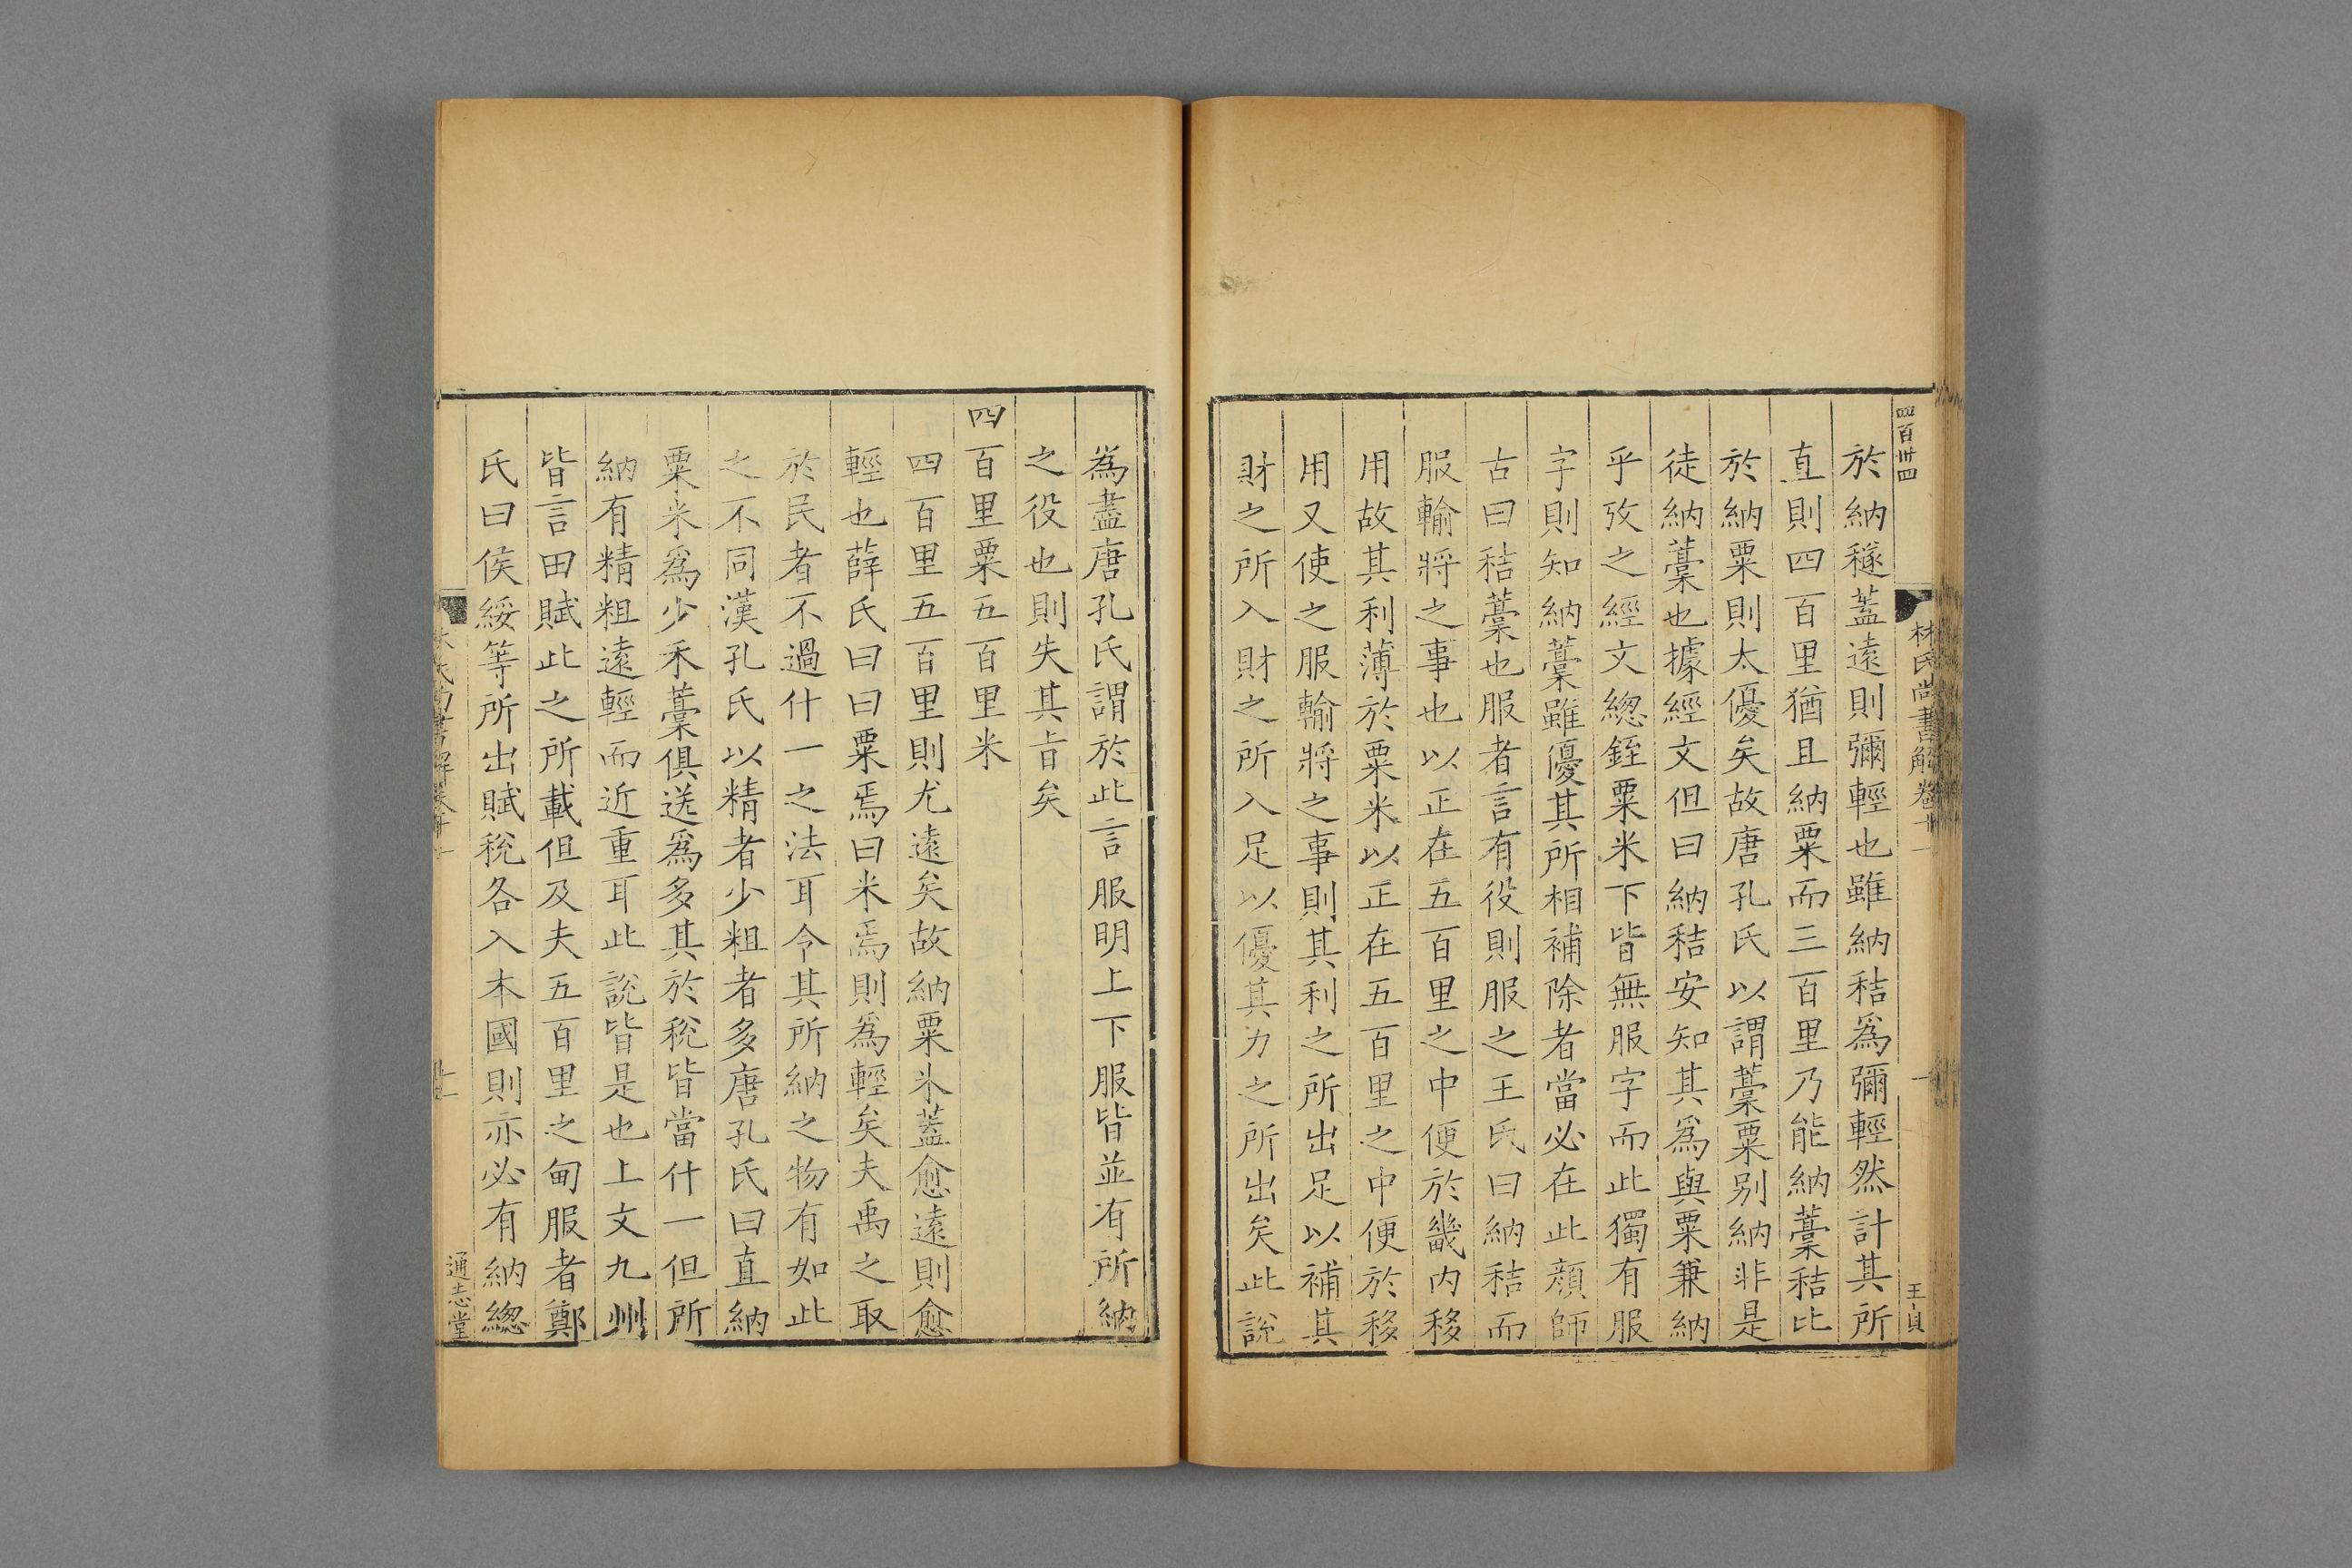 四百卌四
林氏尚書解卷十
一
王貞
於納穟葢遠則彌輕也雖納秸爲彌輕然計其所
直則四百里猶且納粟而三百里乃能納藁秸比
於納粟則太優矣故唐孔氏以謂藁粟别納非是
徒納藁也據經文但曰納秸安知其爲與粟兼納
乎攷之經文緫銍粟米下皆無服字而此獨有服
字則知納藁雖優其所相補除者當必在此顔師
古曰秸藁也服者言有役則服之王氏曰納秸而
服輸將之事也以正在五百里之中便於畿内移
用故其利薄於粟米以正在五百里之中便於移
用又使之服輸將之事則其利之所出足以補其
財之所入財之所入足以優其力之所出矣此說
爲盡唐孔氏謂於此言服明上下服皆並有所納
之役也則失其㫖矣
四百里粟五百里米
四百里五百里則尤遠矣故納粟米葢愈遠則愈
輕也薛氏曰曰粟焉曰米焉則爲輕矣夫禹之取
於民者不過什一之法耳令其所納之物有如此
之不同漢孔氏以精者少粗者多唐孔氏曰直納
粟米爲少禾藁俱送爲多其於稅皆當什一但所
納有精粗遠輕而近重耳此說皆是也上文九州
皆言田賦此之所載但及夫五百里之甸服者鄭
氏曰侯綏等所出賦稅各入本國則亦必有納緫
通志堂